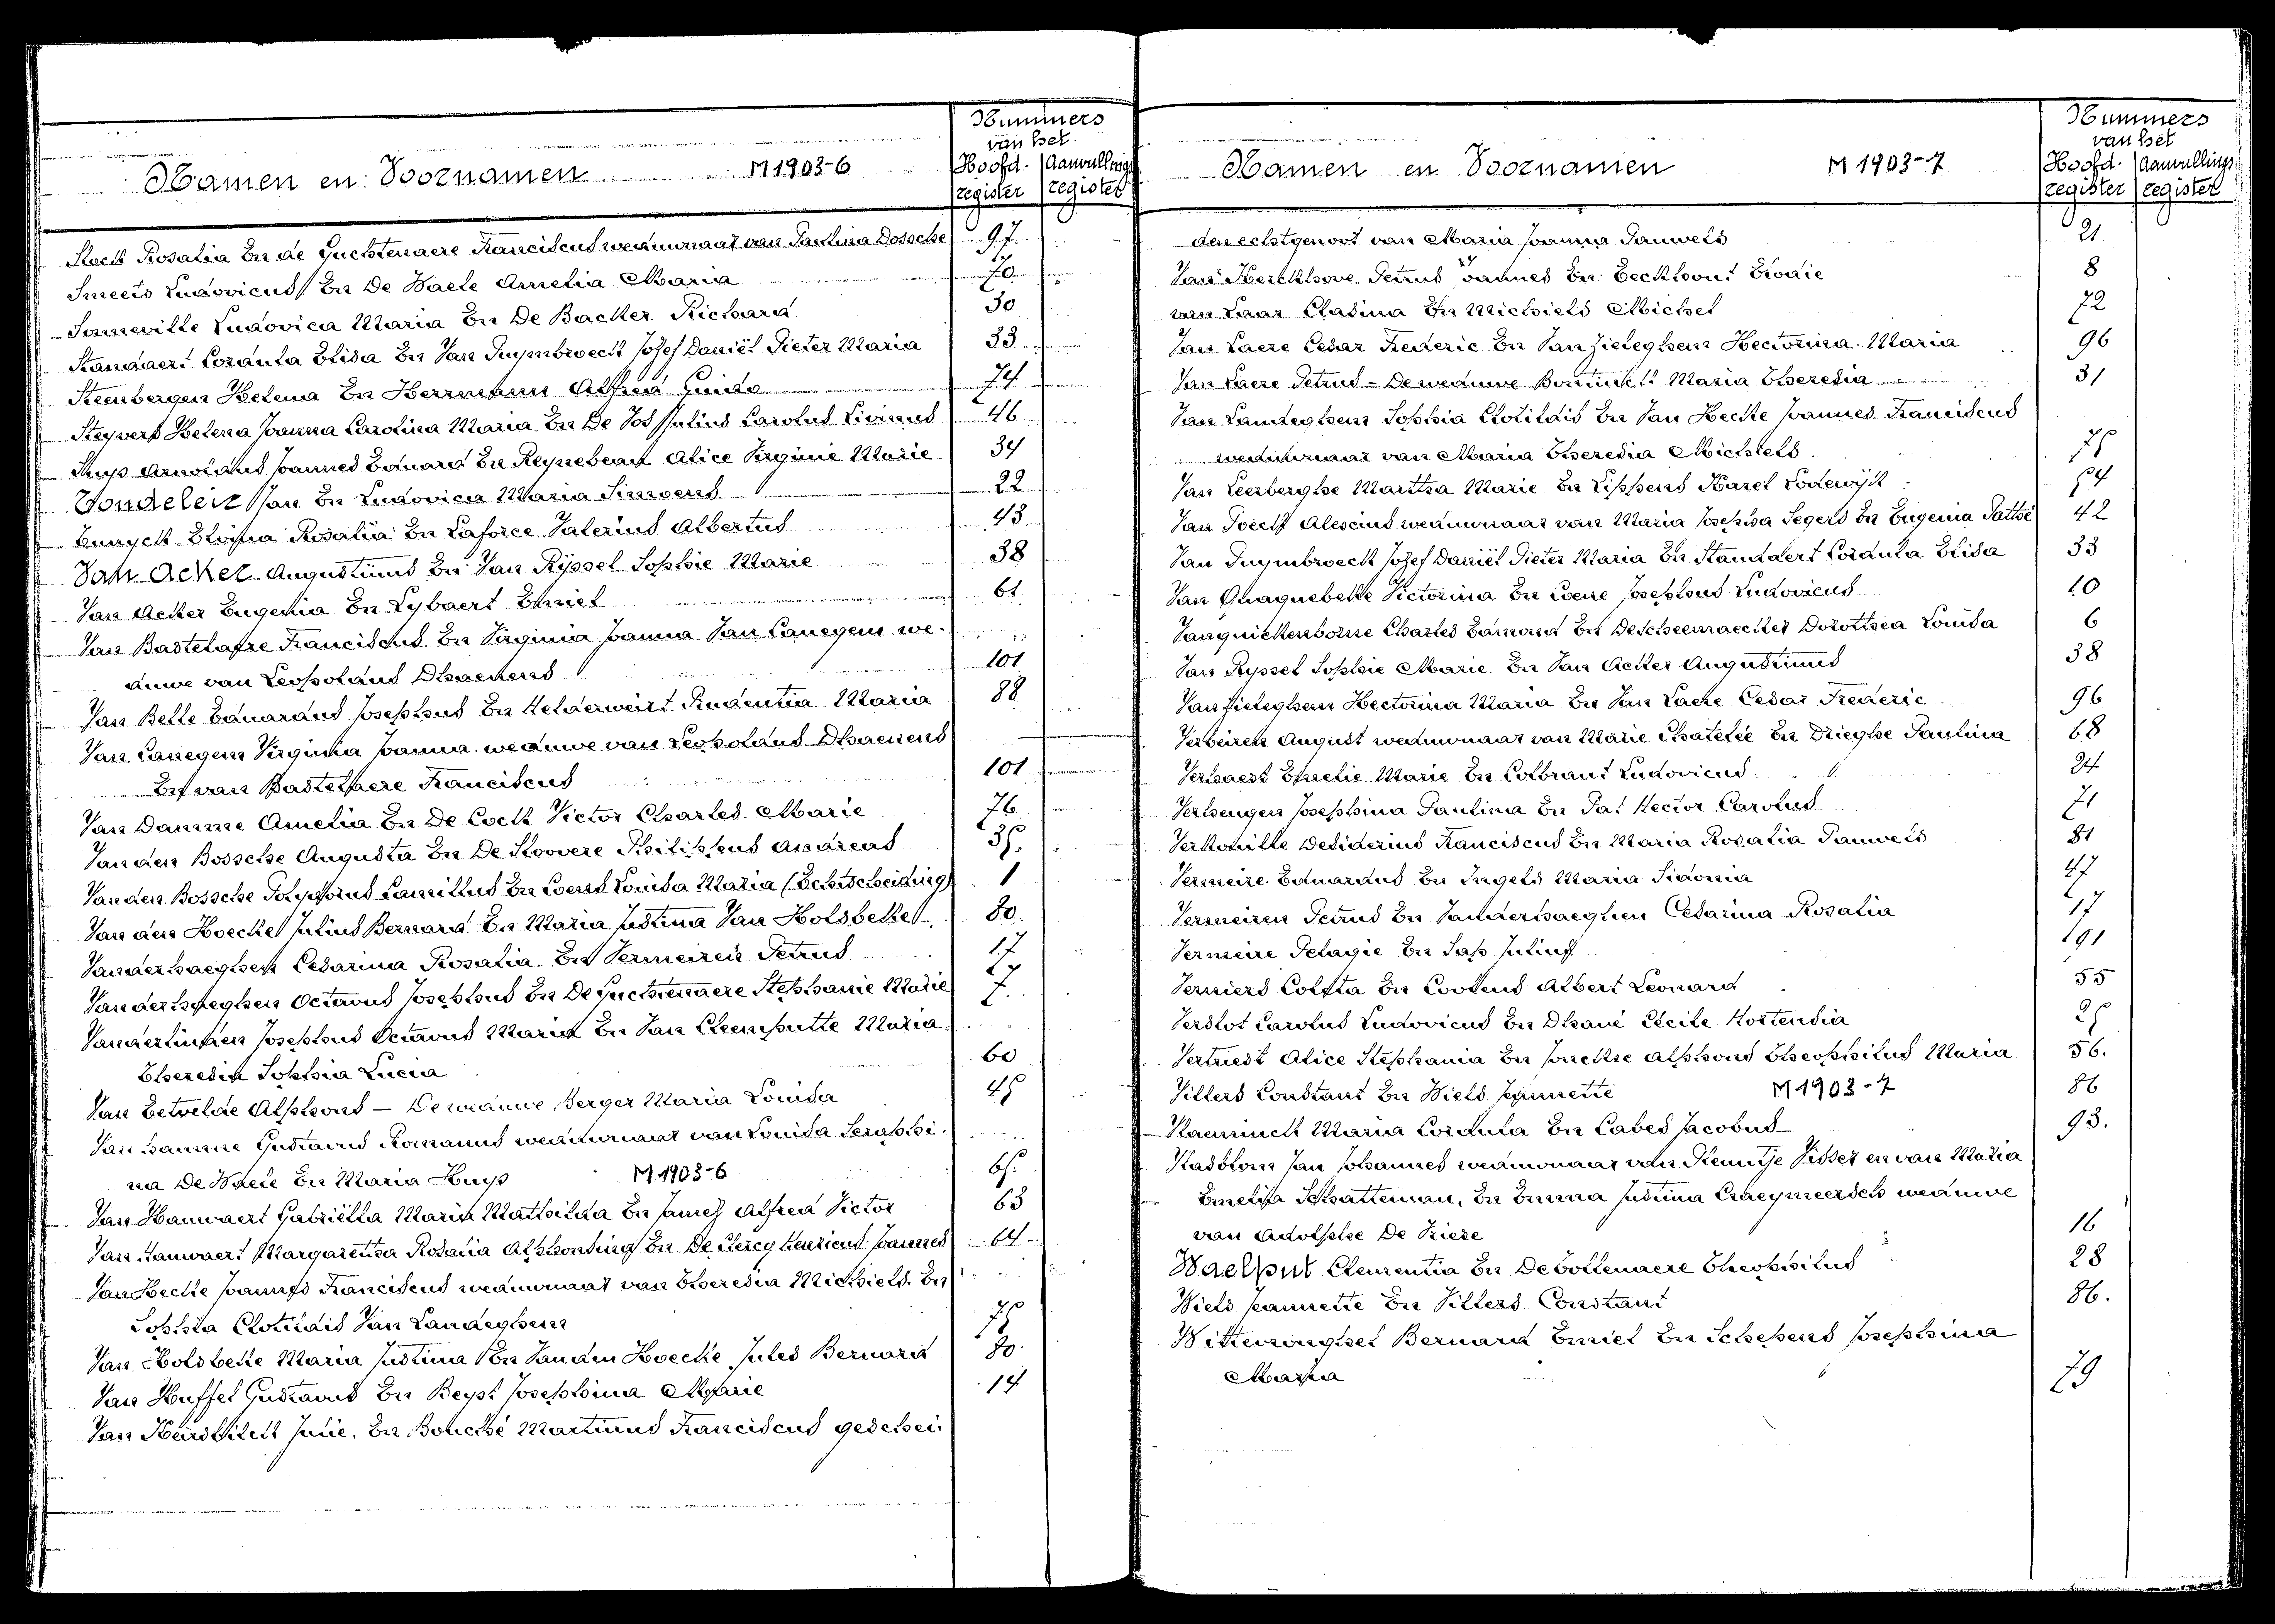 Namen en Voornamen M1903-6
Nummers
van het
Hoofd- Aanvullings
register register
Rosalia En de Guchtenaere Franciscus weduwnaar van Paulina Dossche 97.
Smeets Ludovicus En De Waele Amelia Maria 70
Someville Ludovica Maria En De Backer Richard 30
Standaert Cordula Elisa En Van Puymbroeck Jozef Daniël Pieter Maria 33
Steenbergen Helena En Herrmann Alfred Guido 74
Steyvers Helena Joanna Carolina Maria En De Vos Julius Carolus Livinus 46
Arnoldus Joannes Eduard En Reynebeau Alice Virginie Marie 34
Tondeleir Jan En Ludovica Maria Simoens 22
Tunyck Elvina Rosalia En Laforce Valerius Albertus 43
Van Acker Augustinus En Van Ryssel Sophie Marie 38
Van Acker Eugenia En Lybaert Emiel 61
Van Bastelaere Franciscus En Virginia Joanna Van Canegem we-
duwe van Leopoldus Dhaenens 101
Van Belle Eduardus Josephus En Helderweirt Prudentia Maria 88
Van Canegem Virginia Joanna weduwe van Leopoldus Dhaenens
En van Bastelaere Franciscus 101
Van Damme Amelia En De Cock Victor Charles Marie 76
Van den Bossche Augusta En De Stoovere Philippus Andreas 35.
Van den Bossche Polydorus Camillus En Coens Louisa Maria (Echtscheiding) 1
Van den Hoecke Julius Bernard En Maria Justina Van Holsbeke 80.
Vanderhaeghen Cesarina Rosalia En Vermeiren Petrus 17
Vanderhaeghen Octavus Josephus En De Guchtenaere Stephanie Marie 7.
Vanderlinden Josephus Octavus Maria En Van Cleemputte Maria
Theresia Sophia Lucia 60
Van Eetvelde Alphons - De weduwe Berger Maria Louisa 45
Van hamme Gustavus Romanus weduwnaar van Louisa Seraphi-
na De Waele En Maria Huys M1903-6 65.
Van Hauwaert Gabriëlla Maria Mathilda En James Alfred Victor 63
Van Hauwaert Margaretha Rosalia Alphonsina En De Clercq Henricus Joannes 64
Van Hecke Joannes Franciscus weduwnaar van Theresia Michiels En
Sophia Clotildis Van Landeghem 75
Van Holsbeke Maria Justina En Vanden Hoecke Jules Bernard 80.
Van Huffel Gustavus En Beyst Josephina Marie 14
Van Julie. En Bouché Martinus Franciscus geschei-
Namen en Voornamen M1903-7
Nummers
van het
Hoofd- Aanvullings
register register
den echtgenoot van Maria Joanna Pauwels 21
Van Kerckhove Petrus Joannes En Eeckhout Elodie 8
van Laar Cladina En Michiels Michel 72
Van Laere Cesar Frederic En Van Zieleghem Hectorina Maria 96
Van Laere Petrus - De weduwe Maria Theresia 31
Van Landeghem Sophia Clotildis En Van Hecke Joannes Franciscus
weduwnaar van Maria Theresia Michiels 75
Van Leerberghe Martha Marie En Lippens Karel Lodewijk 54
Van Poeck weduwnaar van Maria Josepha Segers En Eugenia 42
Van Puymbroeck Jozef Daniël Pieter Maria En Standaert Cordula Elisa 33
Van Quaquebeke Victorina En Coene Josephus Ludovicus 10
Vanquickenborne Charles Edmond En Descheemaecker Dorothea Louisa 6
Van Ryssel Sophie Marie En Van Acker Augustinus 38
Van Zieleghem Hectorina Maria En Van Laere Cesar Frederic 96
Verbeiren August weduwnaar van Marie Chatelée En Drieghe Paulina 68
Verhaest Emelie Marie En Colbrant Ludovicus 24
Verheugen Josephina Paulina En Pat Hector Carolus 71
Verkouille Desiderius Franciscus En Maria Rosalia Pauwels 81
Vermeire Eduardus En Ingels Maria Sidonia 47
Vermeiren Petrus En Vanderhaeghen Cesarina Rosalia 17
Vermeire Pelagie En Sap Julius 91
Verniers Coleta En Cootens Albert Leonard 55
Verslot Carolus Ludovicus En Dhaué Cécile Hortensia 25
Vertriest Alice Stephania En Jonckhe Alphons Theophilus Maria 56.
Villers Constant En Wiels Jeannette M1903-7 86
Vlaeminck Maria Cordula En Cabes Jacobus 93.
Vlasblom Jan Johannes weduwnaar van Klemtje Visser en van Maria
Emelia Schatteman, En Emma Justina Craeymeersch weduwe
van Adolphe De Kiere 16
Waelput Clementia En De Bottenaere Theophilus 28
Wiels Jeannette En Villers Constant 86.
Wittevronghel Bernard Emiel En Schepens Josephina
Maria 79